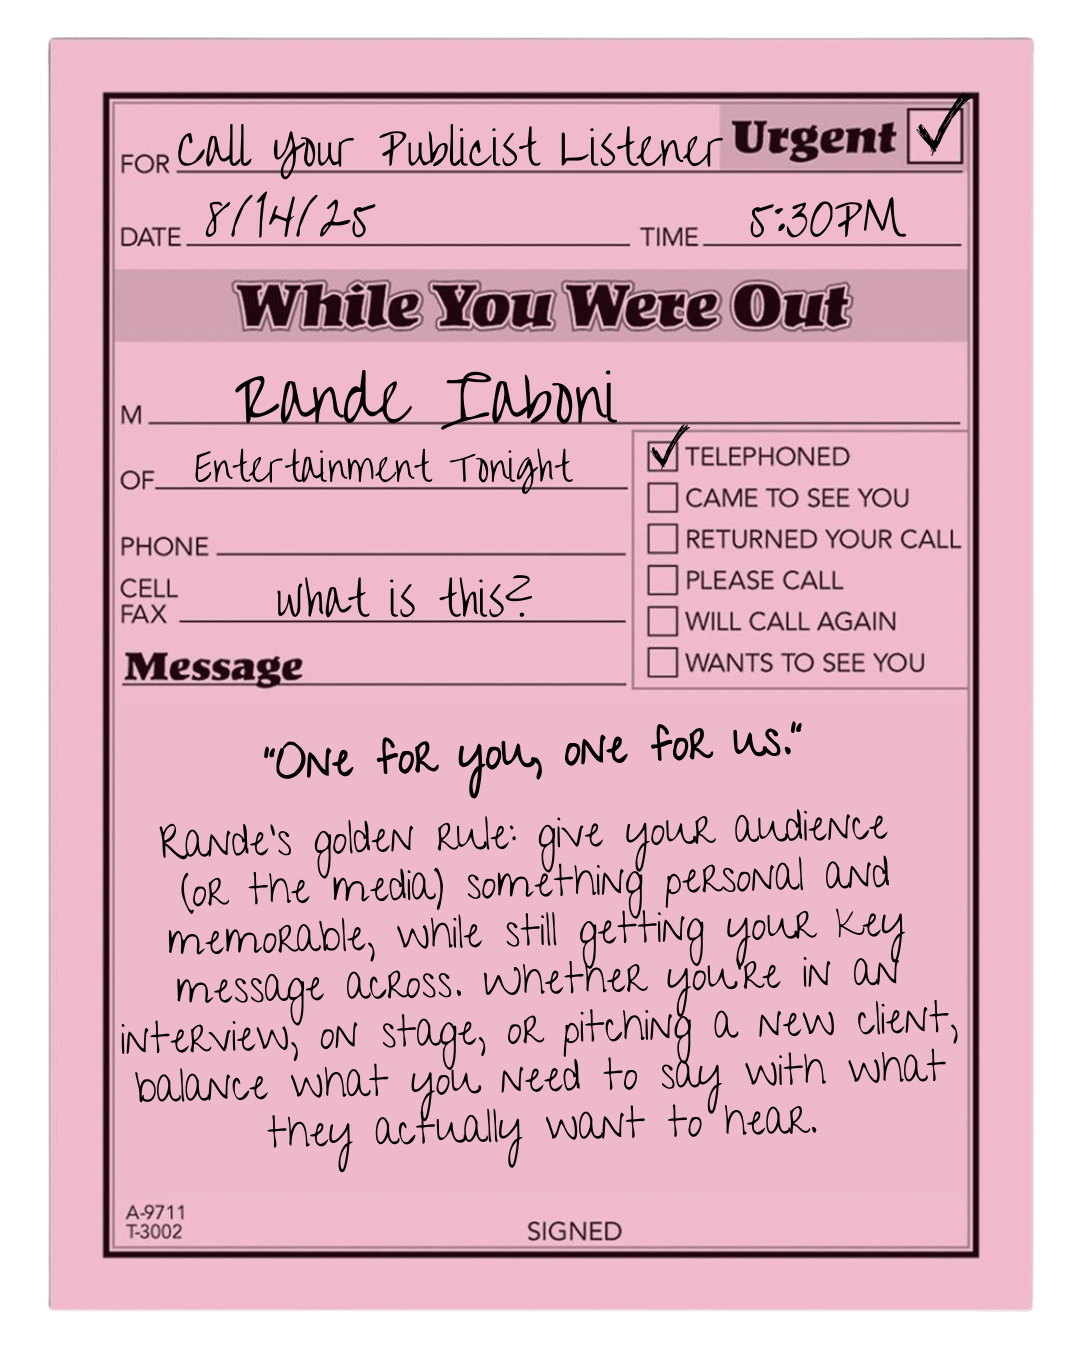 FOR Call your Publicist Listener Urgent
DATE 8/14/25 TIME 5:30PM
While You Were Out
M Rande Iaboni
OF Entertainment Tonight
PHONE
CELL
FAX what is this?
TELEPHONED
CAME TO SEE YOU
RETURNED YOUR CALL
PLEASE CALL
WILL CALL AGAIN
WANTS TO SEE YOU
Message
"One for you, one for us."
Rande's golden rule: give your audience
(or the media) something personal and
memorable, while still getting your key
message across. Whether you're in an
interview, on stage, or pitching a new client,
balance what you need to say with what
they actually want to hear.
A-9711
T-3002
SIGNED